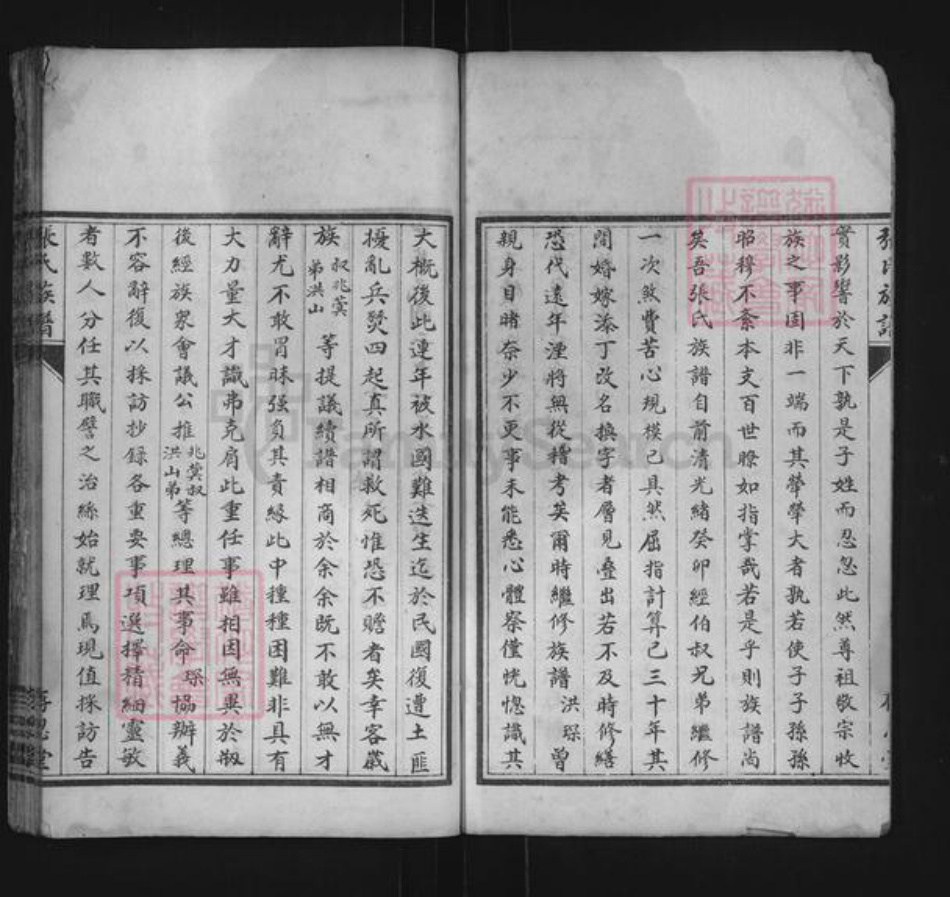 張氏族譜
實影響於天下孰是子姓而忍忽此然尊祖敬宗收
族之事固非一端而其犖犖大者孰若使子子孫孫
昭穆不紊本支百世瞭如指掌哉若是乎則族譜尚
矣吾張氏族譜自前清光緒癸卯經伯叔兄弟繼修
一次煞費苦心規模已具然屈指計算已三十年其
間婚嫁添丁改名換字者層見疊出若不及時修繕
恐代遠年湮將無從稽考矣爾時繼修族譜洪琛曾
親身目睹奈少不更事未能悉心體察僅恍惚識其
大概後此連年被水國難迭生迄於民國復遭土匪
擾亂兵燹四起真所謂救死惟恐不贍者矣幸客歲
族叔兆蓂弟洪山等提議續譜相商於余余既不敢以無才
辭尤不敢冒昧强負其責緣此中種種困難非具有
大力量大才識弗克肩此重任事雖相因無異於刱
後經族衆會議公推兆蓂叔洪山弟等總理其事命琛協辦義
不容辭復以採訪抄錄各重要事項選擇精細靈敏
者數人分任其職譬之治絲始就理焉現值採訪告
張氏族譜
FamilySearch